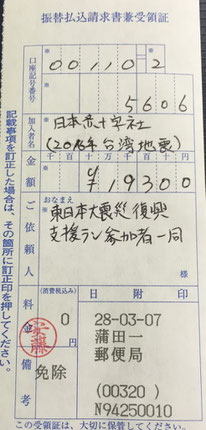 振替払込請求書兼受領証
口座記号番号
00110 2
5606
加入者名
日本赤十字社
(2016年台湾地震)
金額
千 百 十 万 千 百 十 円
¥19300
ご依頼人
おなまえ
東日本大震災復興
支援ラン参加者一同
様
料金
(消費税込み)
0 円
免除
備考
日附印
28-03-07
蒲田一
郵便局
(00320)
N94250010
記載事項を訂正した場合は、その箇所に訂正印を押してください。
この受領証は、大切に保管してください。